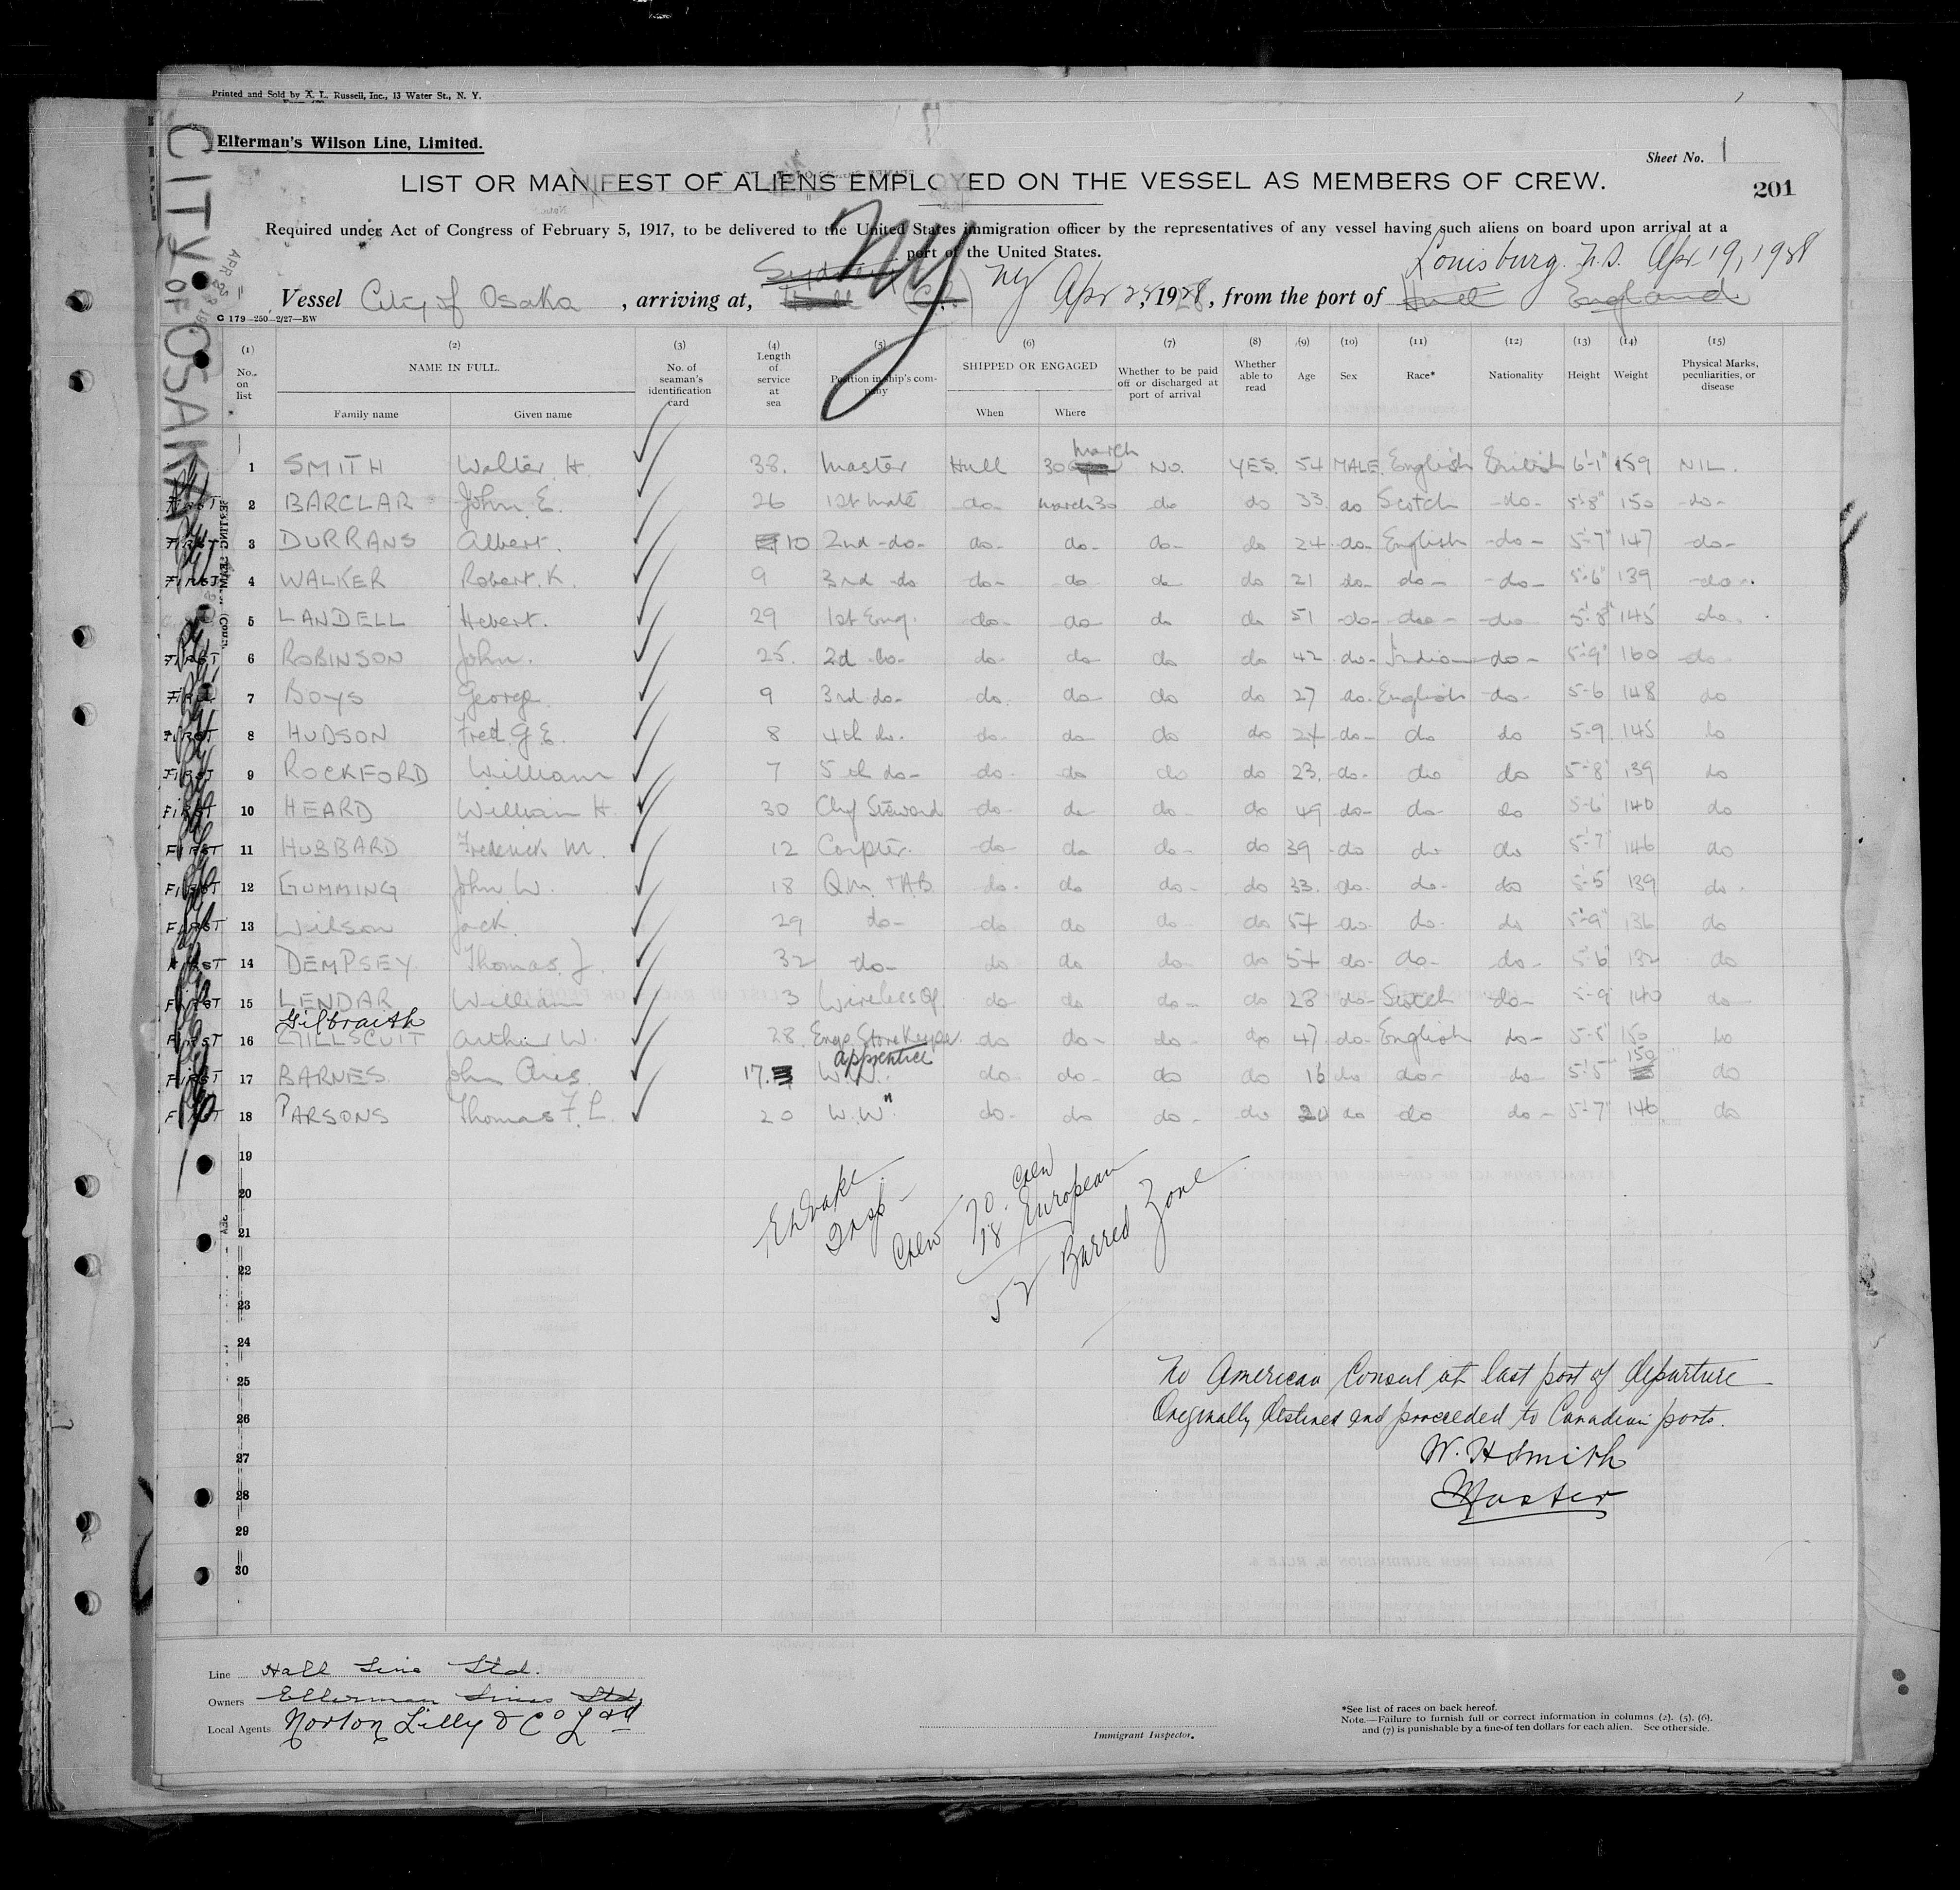 Printed and Sold by A. L. Russell, Inc., 13 Water St., N. Y.
Ellerman's Wilson Line, Limited.
Sheet No. 1
LIST OR MANIFEST OF ALIENS EMPLOYED ON THE VESSEL AS MEMBERS OF CREW.
201
CITY OF OSAKA
Required under Act of Congress of February 5, 1917, to be delivered to the United States immigration officer by the representatives of any vessel having such aliens on board upon arrival at a
port of the United States.
NY
Louisburg. N.S. Apr 19, 1928
Vessel City of Osaka, arriving at, Sydney Hull (C.B.) NY Apr 23, 1928, from the port of Hull England
C 179—250—2/27—EW
(1) (2) (3) (4) (5) (6) (7) (8) (9) (10) (11) (12) (13) (14) (15)
No. on list NAME IN FULL. Family name Given name No. of seaman's identification card Length of service at sea Position in ship's company SHIPPED OR ENGAGED When Where Whether to be paid off or discharged at port of arrival Whether able to read Age Sex Race* Nationality Height Weight Physical Marks, peculiarities, or disease
1 SMITH Walter H. 38. Master Hull 30 March No. YES. 54 MALE. English British 6'-1" 159 NIL.
FIRST 2 BARCLAR John E. 26 1st Mate do- March 30 do do 33 do Scotch -do- 5'-8" 150 -do-
FIRST 3 DURRANS Albert. 10 2nd -do- do- do- do- do 24 -do- English -do- 5'-7" 147 -do-
FIRST 4 WALKER Robert. K. 9 3rd -do do- do do do 21 do- do- -do- 5'-6" 139 -do-
5 LANDELL Hebert. 29 1st Eng. do- do- do do 51 -do- do- do 5'-8" 145 do.
FIRST 6 ROBINSON John. 25. 2d do- do- do- do do 42 do- -do- 5'-9" 160 do
FIRST 7 BOYS George. 9 3rd do- do. do- do do 27 do. English do- 5-6 148 do
FIRST 8 HUDSON Fred. G.E. 8 4th do. do- do- do do 24 do- do do 5-9 145 do
FIRST 9 ROCKFORD William 7 5th do- do- do do do 23. do- do do 5'-8" 139 do
FIRST 10 HEARD William H. 30 Chf Steward do- do do do 49 do- do- do 5-6 140 do
FIRST 11 HUBBARD Frederick M. 12 Carpter. do- do do- do 39 do do do 5'-7" 146 do
FIRST 12 GUMMING John W. 18 Q.M. + A.B. do- do do- do 33. do- do- do 5'-5" 139 do.
FIRST 13 Wilson Jack. 29 do- do do do do 54 do- do- do 5'-9" 136 do
FIRST 14 DEMPSEY. Thomas. J. 32 do- do do do- do 54 do- do- do- 5'-6" 132 do
FIRST 15 LENDAR William 3 Wireless Op. do- do do- do 28 do- Scotch do- 5-9 140 do-
Gilbraith
FIRST 16 GILLSCUIT Arthur W. 28. Engs Store Keeper. do do- do- do 47. do- English do- 5-8" 150 do
apprentice
FIRST 17 BARNES John 17. W.W. do do- do do 16 do do- do 5'-5" 150 do
FIRST 18 PARSONS Thomas F. L. 20 W.W" do- do do- do 20 do do do- 5'-7" 146 do
19
20
21
22
23
24
25
26
27
28
29
30
Insp
Crew 70. Crew
18 European
52 Barred Zone
No American Consul at last port of departure
Originally destined and proceeded to Canadian ports.
W. H Smith
Master
Line Hall Line Ltd.
Owners Ellerman Lines Ltd.
Local Agents Norton Lilly & Co Ltd
Immigrant Inspector.
*See list of races on back hereof.
Note.—Failure to furnish full or correct information in columns (2), (5), (6),
and (7) is punishable by a fine of ten dollars for each alien. See other side.